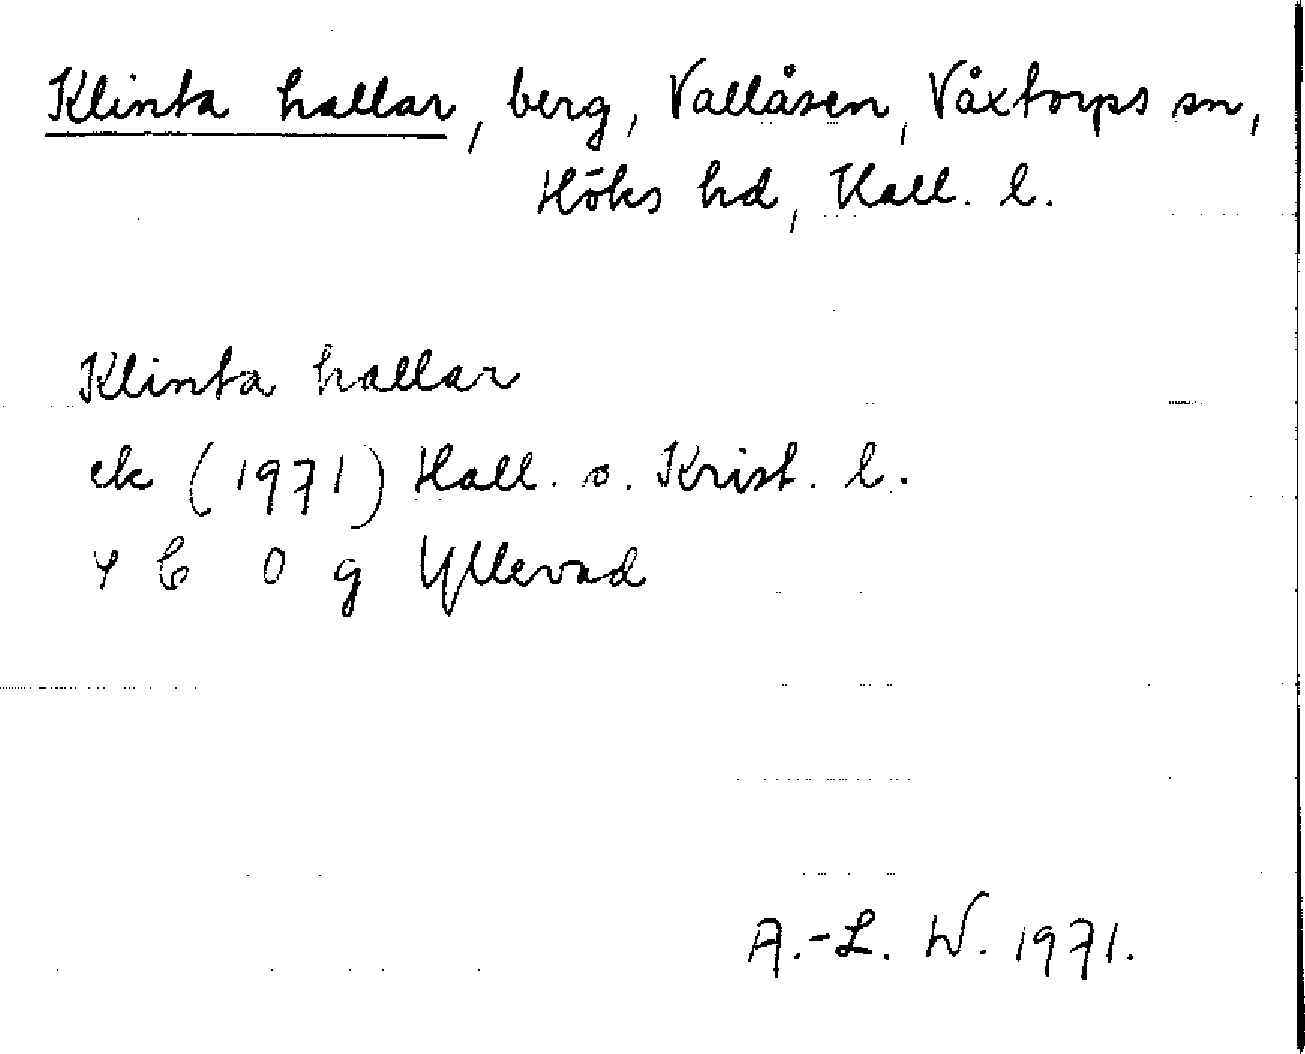 Klinta hallar, berg, Vallåsen, Våxtorps sn,
Höks hd, Hall. l.
Klinta hallar
ek (1971) Hall. o. Krist. l.
4 C 0 g Yllevad
A.-L. W. 1971.